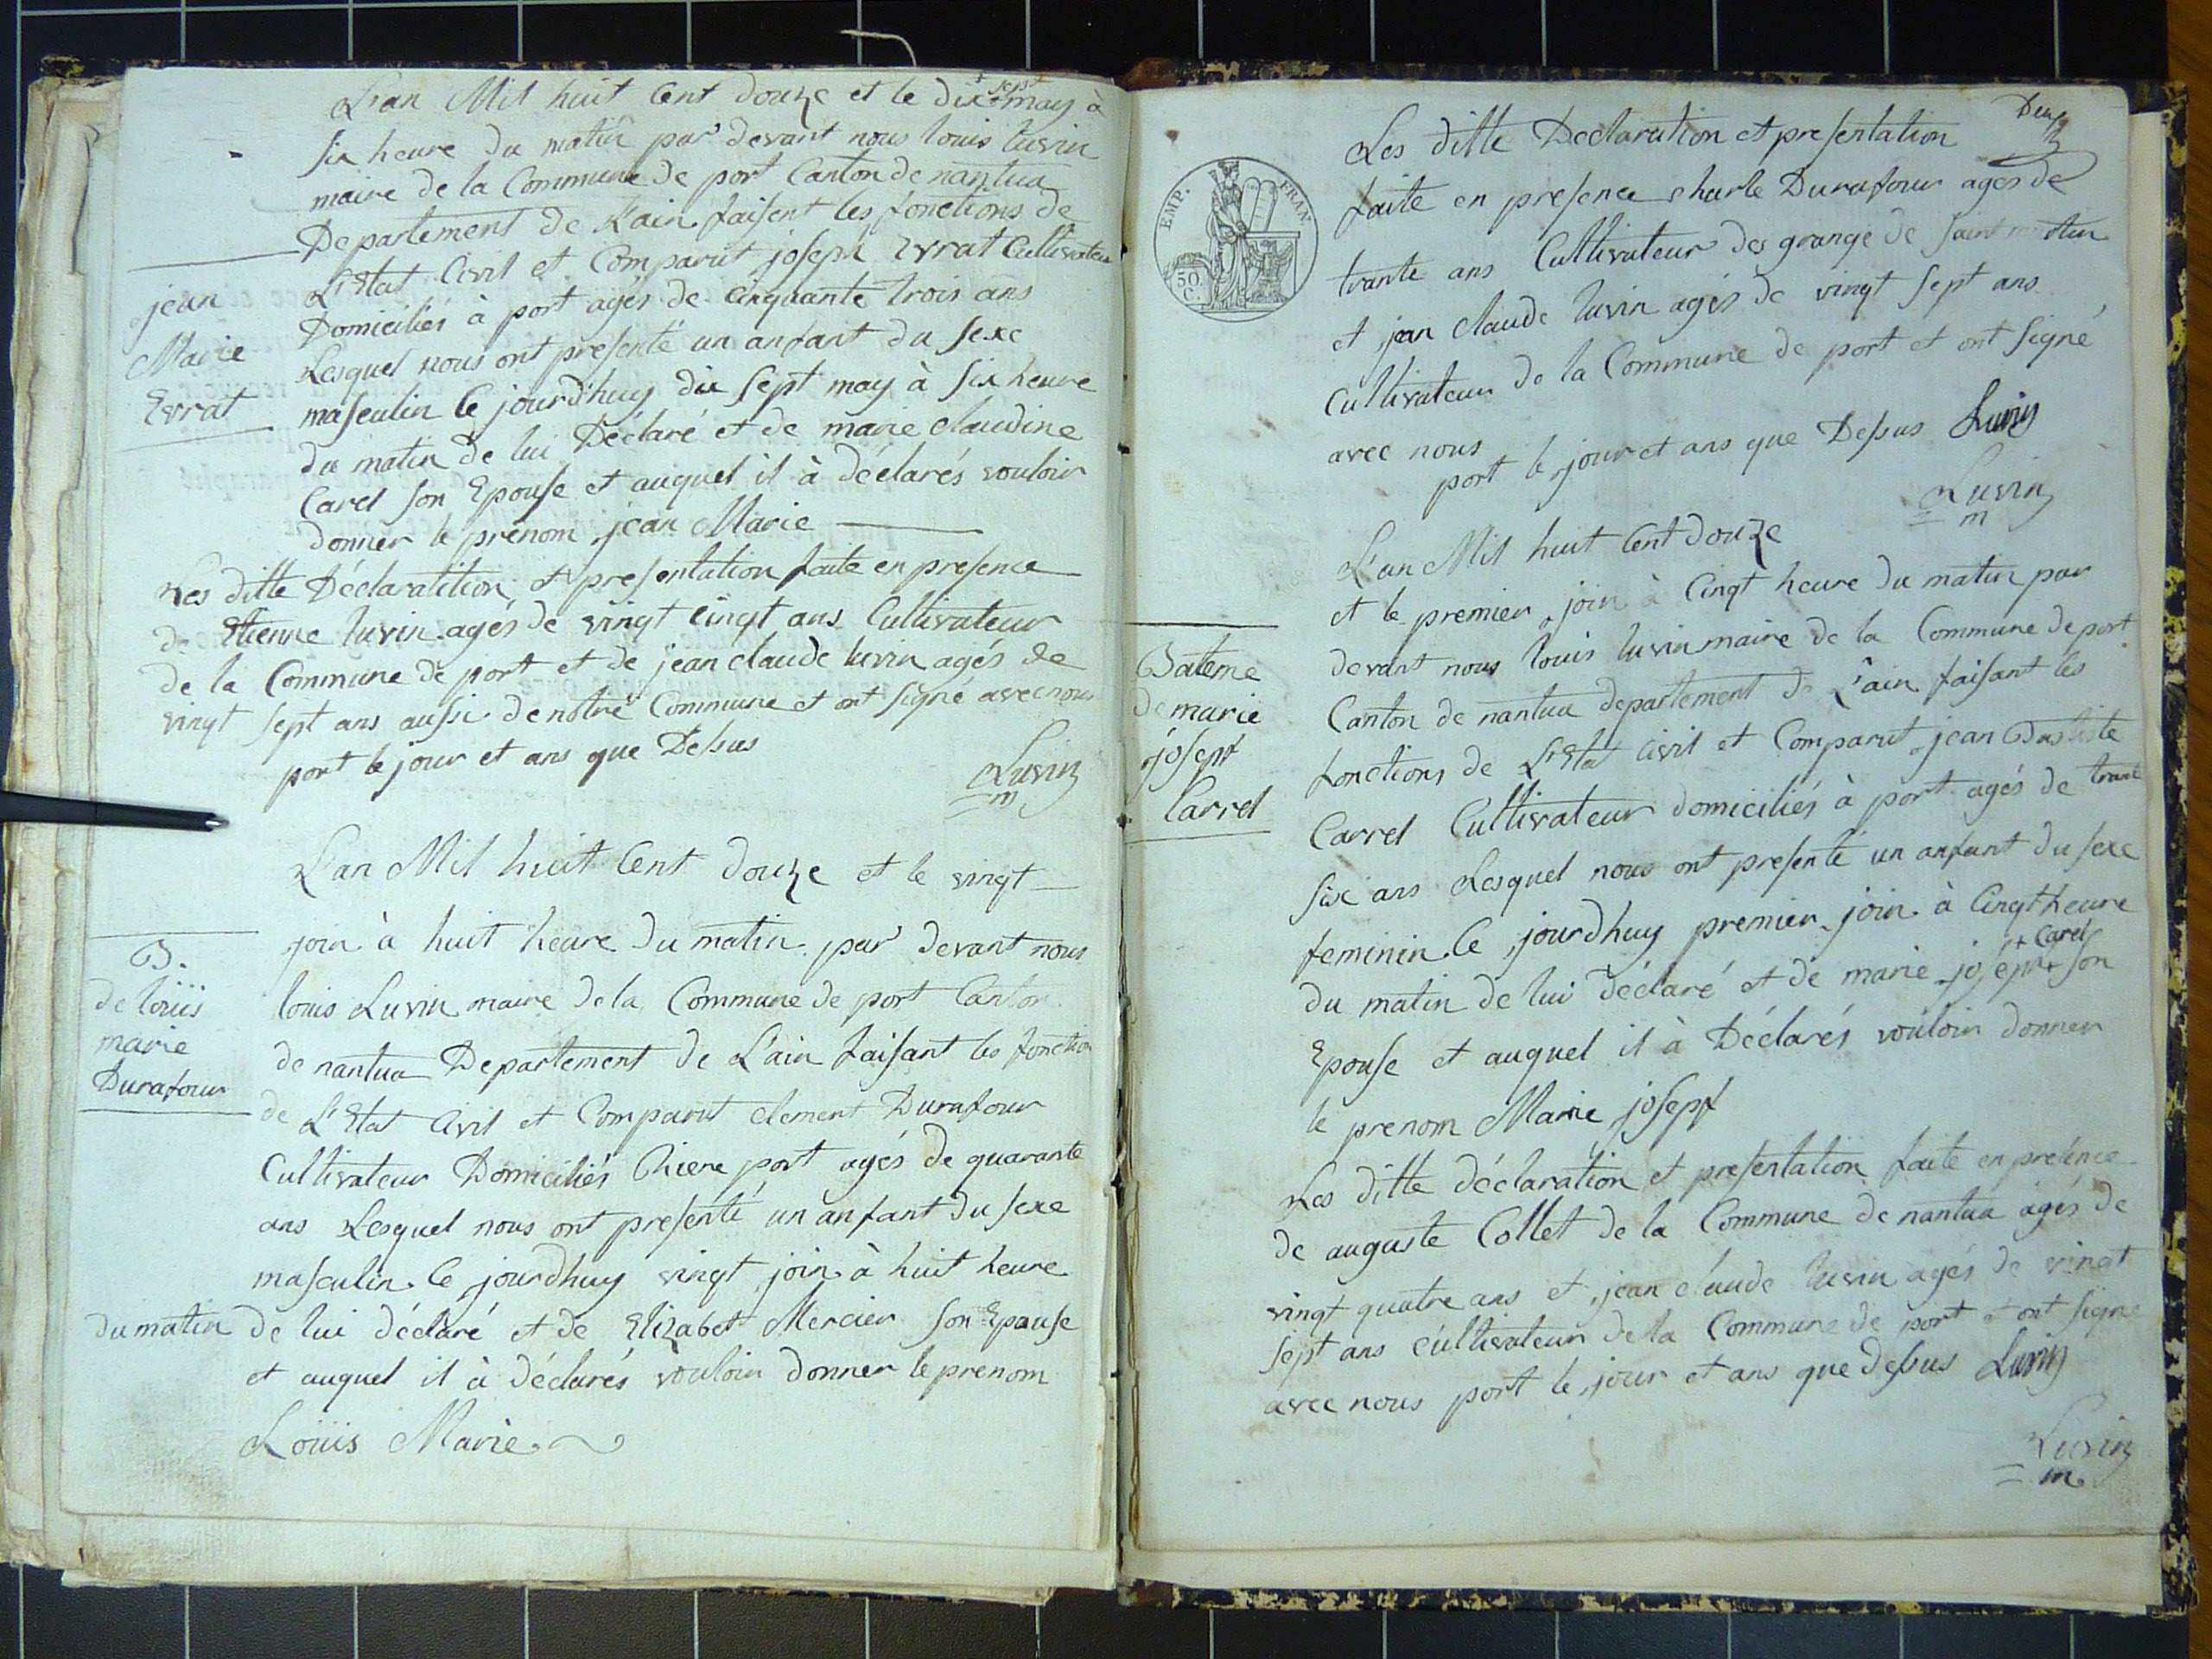 L'an Mil huit Cent douze et le dix + sept may à
six heure du matin par devant nous louis luvin
maire de la Commune de port Canton de nantua
Departement de L'ain faisent les fonctions de
L'Etat Civil et Comparut joseph Evrat Cultivateur
Domiciliés à port agés de Cinquante trois ans
Lesquel nous ont presenté un anfant du sexe
masculin le jourd'huy dix sept may à six heure
du matin de lui Déclaré et de marie claudine
Carel son Epouse et auquel il à déclarés vouloir
donner le prenom jean Marie
jean
Marie
Evrat
Les ditte Déclaratition et presentation faite en presence
de Etienne luvin agés de vingt cinqt ans Cultivateur
de la Commune de port et de jean claude luvin agés de
vingt sept ans aussi de notre Commune et ont signé avec nous
port le jour et ans que Dessus
Luvin
m
L'an Mil huit Cent douze et le vingt
join à huit heure du matin par devant nous
louis Luvin maire de la Commune de port Canton
de nantua Departement de L'ain faisant les fonction
de L'Etat Civil et Comparut clement Durafour
Cultivateur Domiciliés Riere port agés de quarante
ans Lesquel nous ont presenté un anfant du sexe
masculin le jourdhuy vingt join à huit heure
du matin de lui déclaré et de Elizabet Mercier son Epouse
et auquel il à déclarés vouloir donner le prenom
Loüis Marie
B.
de loüis
marie
Durafour
Les ditte Declaration et presentation
faite en presence charle Durafour agés de
trante ans Cultivateur des grange de saint martin
et jean claude luvin agés de vingt sept ans
Cultivateur de la Commune de port et ont signé
avec nous
port le jour et ans que Dessus Luvin
Luvin
m
EMP. FRAN.
50
C.
L'an Mil huit Cent douze
et le premier join à Cinqt heure du matin par
devant nous louis luvin maire de la Commune de port
Canton de nantua departement de L'ain faisant les
fonctions de L'Etat Civil et Comparut jean Batiste
Carrel Cultivateur domiciliés à port agés de trante
six ans Lesquel nous ont presenté un anfant du sexe
feminin le jourdhuy premier join à Cinqt heure
du matin de lui déclaré et de marie joseph + Carel son
Epouse et auquel il à Déclarés vouloir donner
le prenom Marie josepf
Bateme
de marie
josepf
Carrel
Les ditte déclaration et presentation faite en presence
de auguste Collet de la Commune de nantua agés de
vingt quatre ans et jean claude luvin agés de vingt
sept ans cultivateur de la Commune de port et ont signé
avec nous port le jour et ans que dessus Luvin
Luvin
m